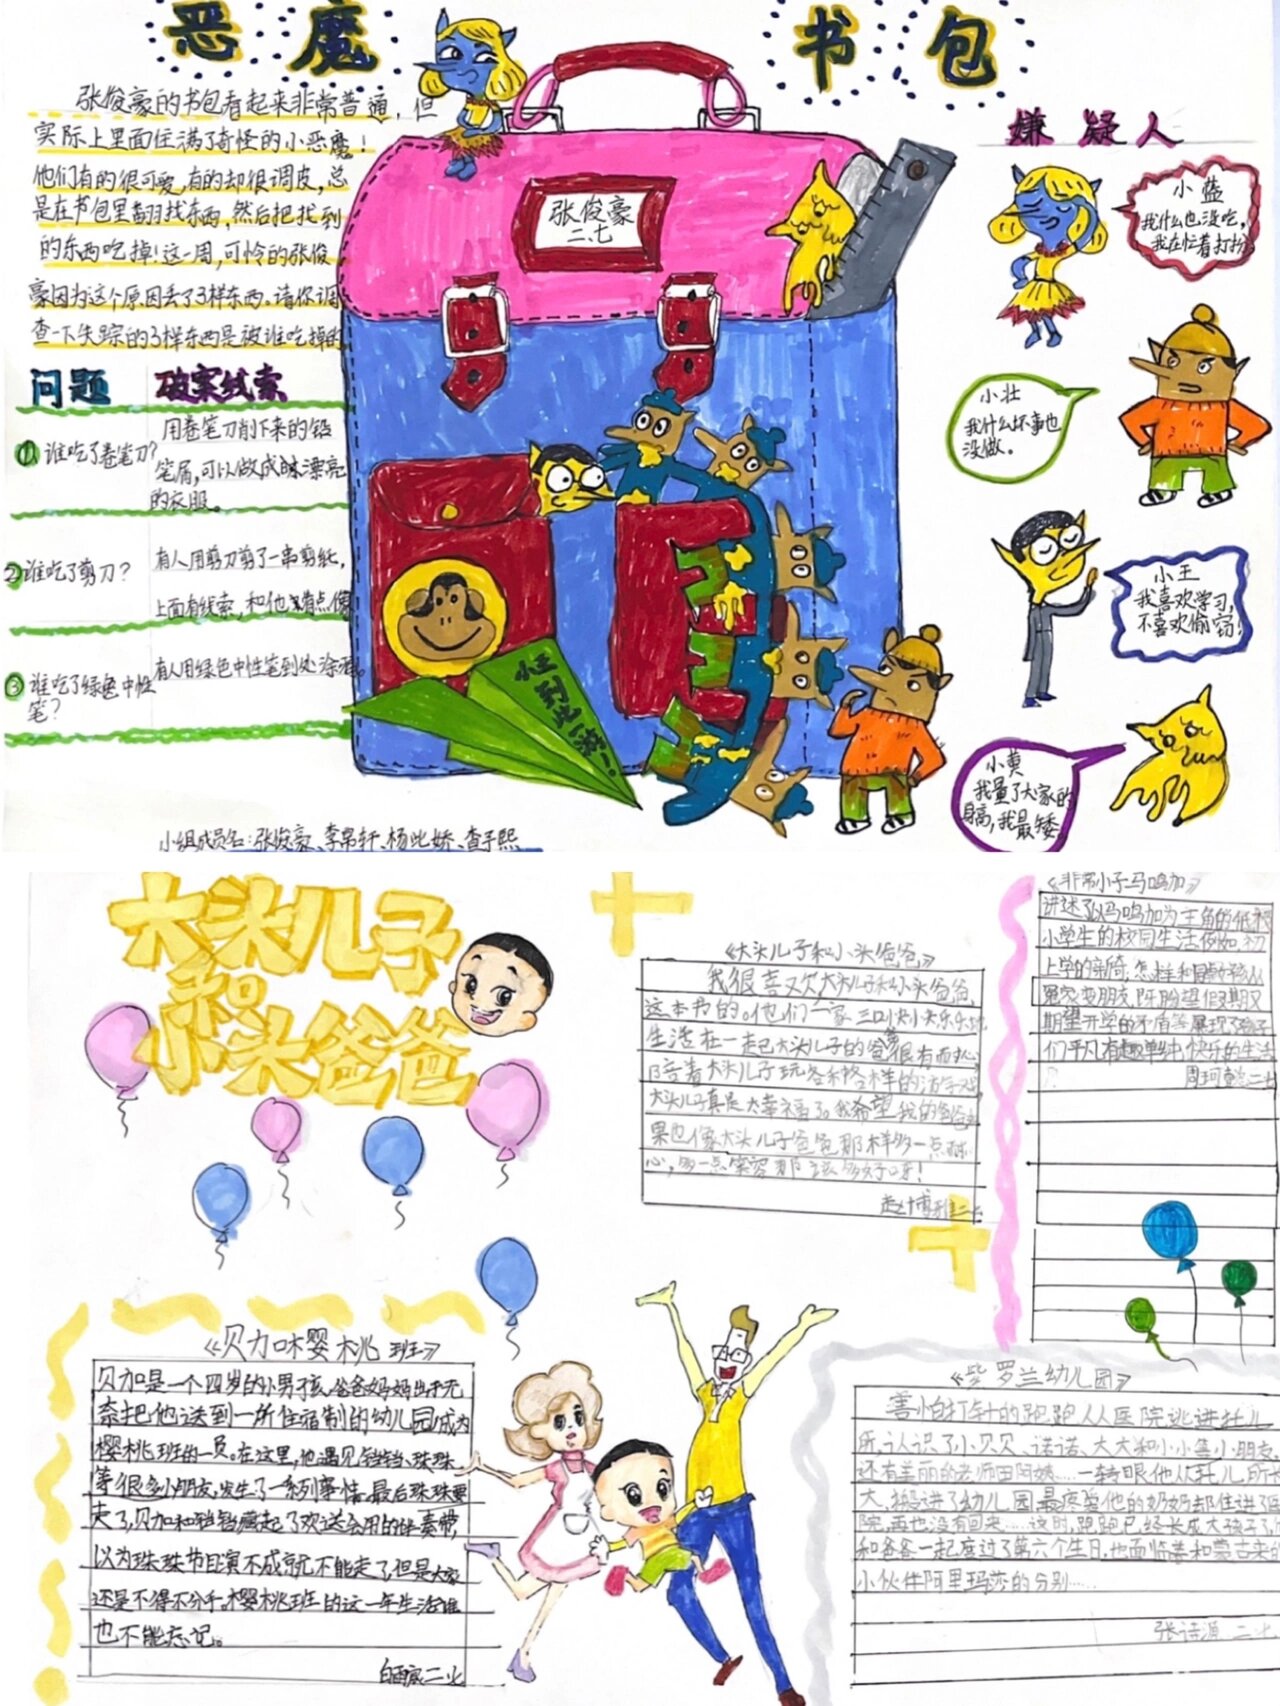 恶魔书包
张俊豪的书包看起来非常普通,但
实际上里面住满了奇怪的小恶魔!
他们有的很可爱,有的却很调皮,总
是在书包里翻找东西,然后把找到
的东西吃掉!这一周,可怜的张俊
豪因为这个原因丢了3样东西。请你调
查一下失踪的3样东西是被谁吃掉的
问题 破案线索
①谁吃了卷笔刀?
用卷笔刀削下来的铅
笔屑,可以做成漂亮
的衣服。
②谁吃了剪刀?
有人用剪刀剪了一串剪纸,
上面有线索,和他有点像
③谁吃了绿色中性
笔?
有人用绿色中性笔到处涂画。
小组成员名:张俊豪、李帛轩、杨此娇、查子熙
张俊豪
二、七
小王到此一游!
嫌疑人
小蓝
我什么也没吃,
我在忙着打扮
小壮
我什么坏事也
没做。
小王
我喜欢学习,
不喜欢偷窃!
小黄
我量了大家的
身高,我最矮。
大头儿子
和
小头爸爸
《大头儿子和小头爸爸》
我很喜欢大头儿子和小头爸爸
这本书的。他们一家三口快快乐乐地
生活在一起大头儿子的爸爸很有耐心
陪着大头儿子玩各种各样的游戏
大头儿子真是太幸福了。我希望我的爸爸
果也像大头儿子爸爸那样多一点耐
心,多一点笑容那该多好呀!
赵博雅二七
《非常小子马鸣加》
讲述了以马鸣加为主角的低
小学生的校园生活例如初
上学的新奇;怎样和同学从
冤家变朋友,既盼望假期又
期望开学的矛盾等展现了孩子
们平凡有趣单纯快乐的生活
周珂
《贝加和樱桃班》
贝加是一个四岁的小男孩,爸爸妈妈出于无
奈把他送到一所住宿制的幼儿园成为
樱桃班的一员。在这里,他遇见铛铛、珠珠
等很多小朋友,发生了一系列事情。最后珠珠要
走了,贝加和铛铛藏起了欢送会用的伴奏带,
以为珠珠节目演不成就不能走了,但是大家
还是不得不分手。樱桃班的这一年生活谁
也不能忘记。
二七
《紫罗兰幼儿园》
害怕打针的跑跑从医院逃进托儿
所,认识了小贝贝、诺诺、大大和小小等小朋友,
还有美丽的老师田阿姨……一转眼他从托儿所
大,搬进了幼儿园最疼爱他的奶奶却住进了医
院,再也没有回来……这时,跑跑已经长成大孩子了,
和爸爸一起度过了第六个生日,也面临着和蒙古来的
小伙伴阿里玛莎的分别……
张诗源 二七